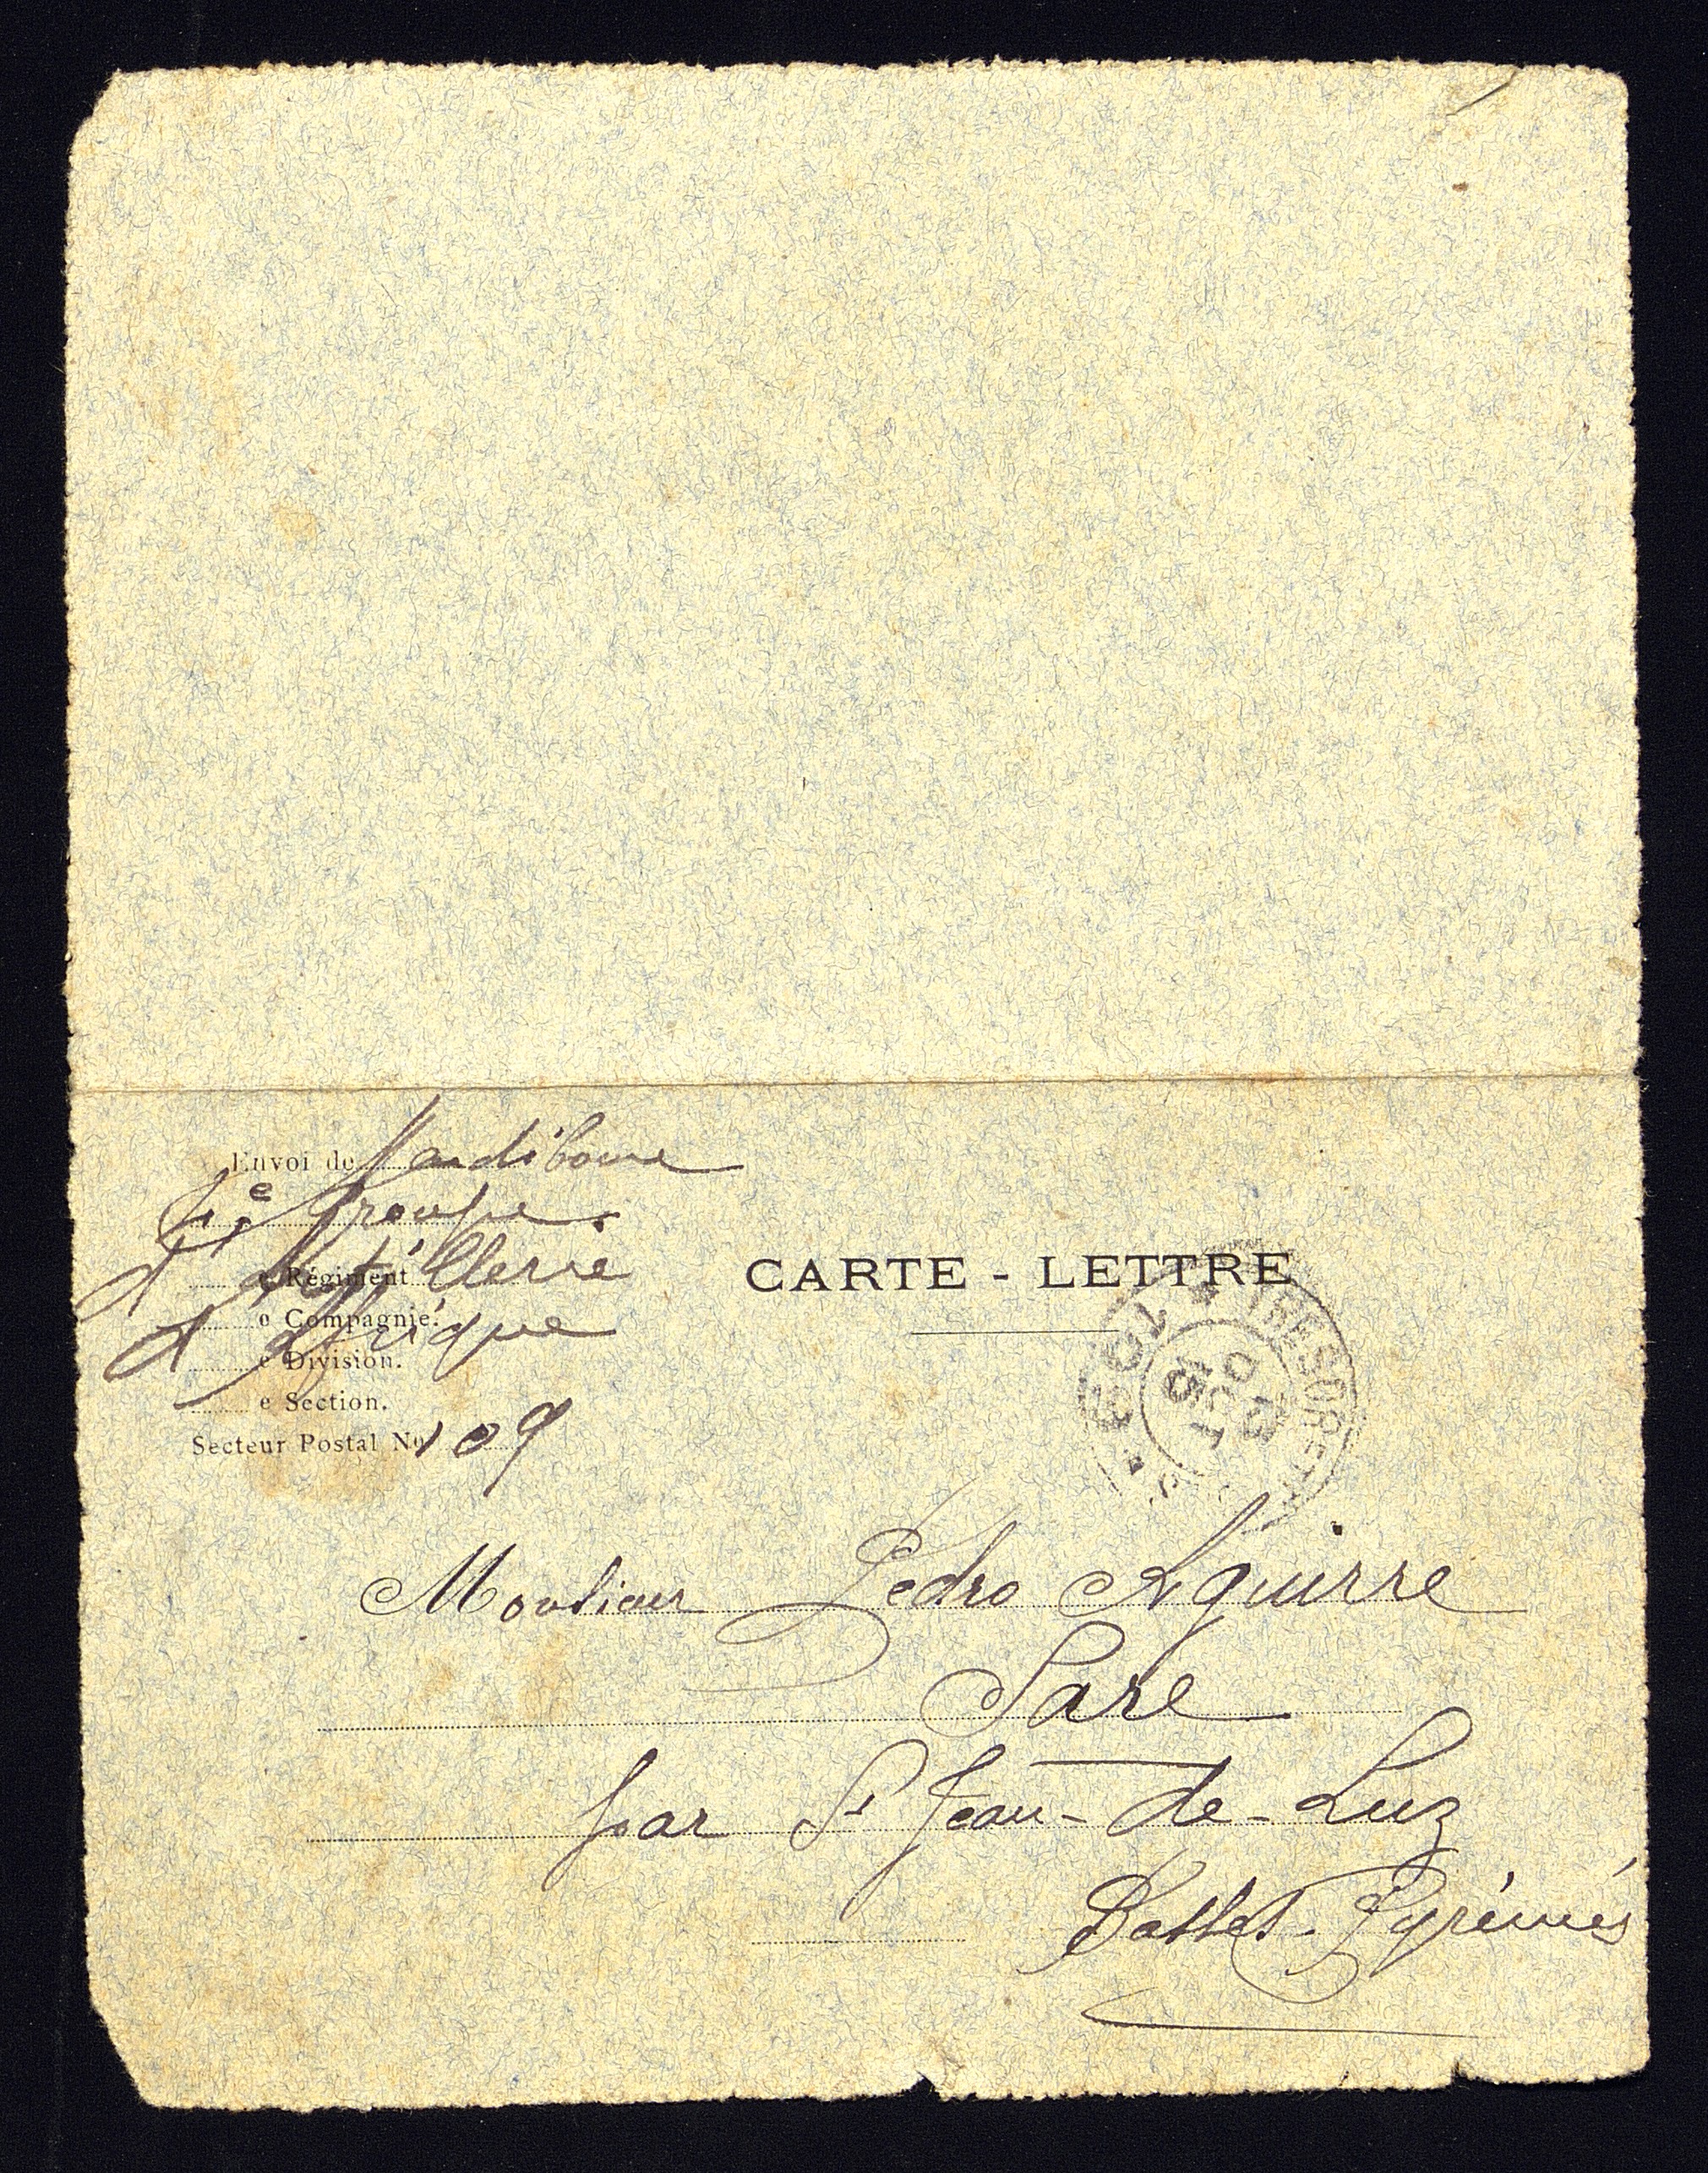 Envoi de Mendiboure
1er Groupe.
d'Artillerie
e Régiment
e Compagnie.
d'Afrique
e Division.
e Section.
Secteur Postal No 109
CARTE - LETTRE
TRESOR ET POSTES * 109 *
OCT
15
Monsieur Pedro Aguirre
Sare
par St Jean-de-Luz
Basses-Pyrénées